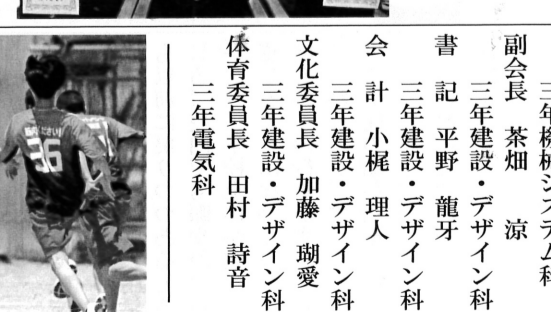 三年機械システム科
副会長　茶畑　涼
三年建設・デザイン科
書　記　平野　龍牙
三年建設・デザイン科
会　計　小梶　理人
三年建設・デザイン科
文化委員長　加藤　瑚愛
三年建設・デザイン科
体育委員長　田村　詩音
三年電気科
36